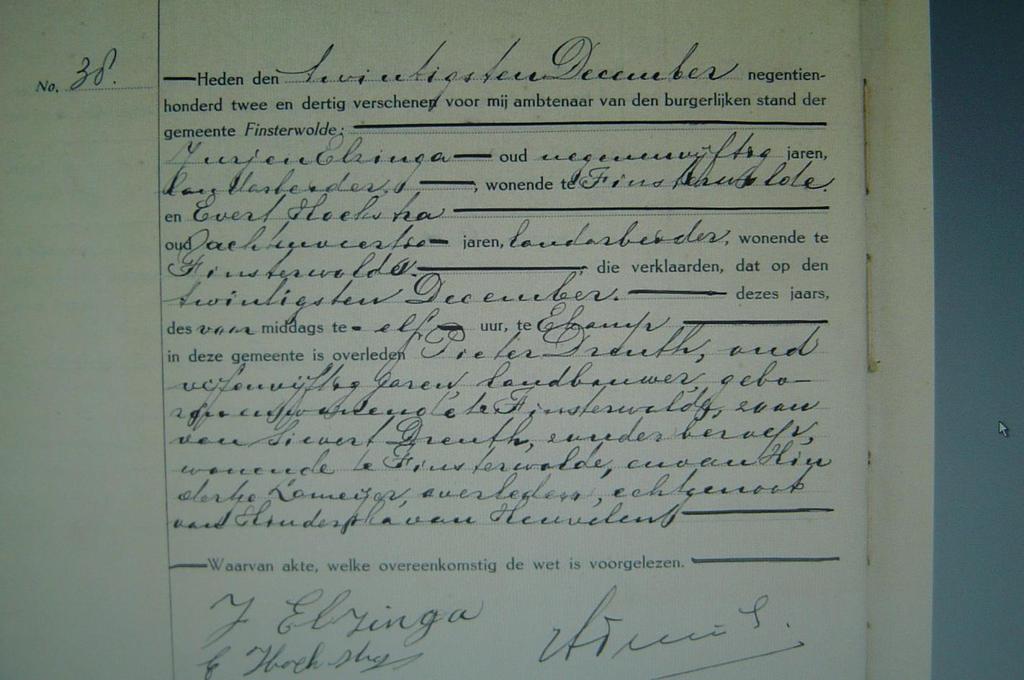 No. 38.
Heden den twintigsten December negentien-
honderd twee en dertig verschenen voor mij ambtenaar van den burgerlijken stand der
gemeente Finsterwolde:
Jurjen Elzinga oud negenenvijftig jaren,
landarbeider, wonende te Finsterwolde.
en Evert Hoekstra
oud achtenveertig jaren, landarbeider, wonende te
Finsterwolde. die verklaarden, dat op den
twintigsten December. dezes jaars,
des voor middags te elf uur, te Ekamp
in deze gemeente is overleden Pieter Dreuth, oud
vijfenvijftig jaren, landbouwer, gebo-
ren en wonende te Finsterwolde, zoon
van Siewert Dreuth, zonder beroep,
wonende te Finsterwolde, en van Hin
derke Lameijer, overleden, echtgenoot
van Hinderika van Heuvelen
Waarvan akte, welke overeenkomstig de wet is voorgelezen.
J Elzinga
E Hoekstra